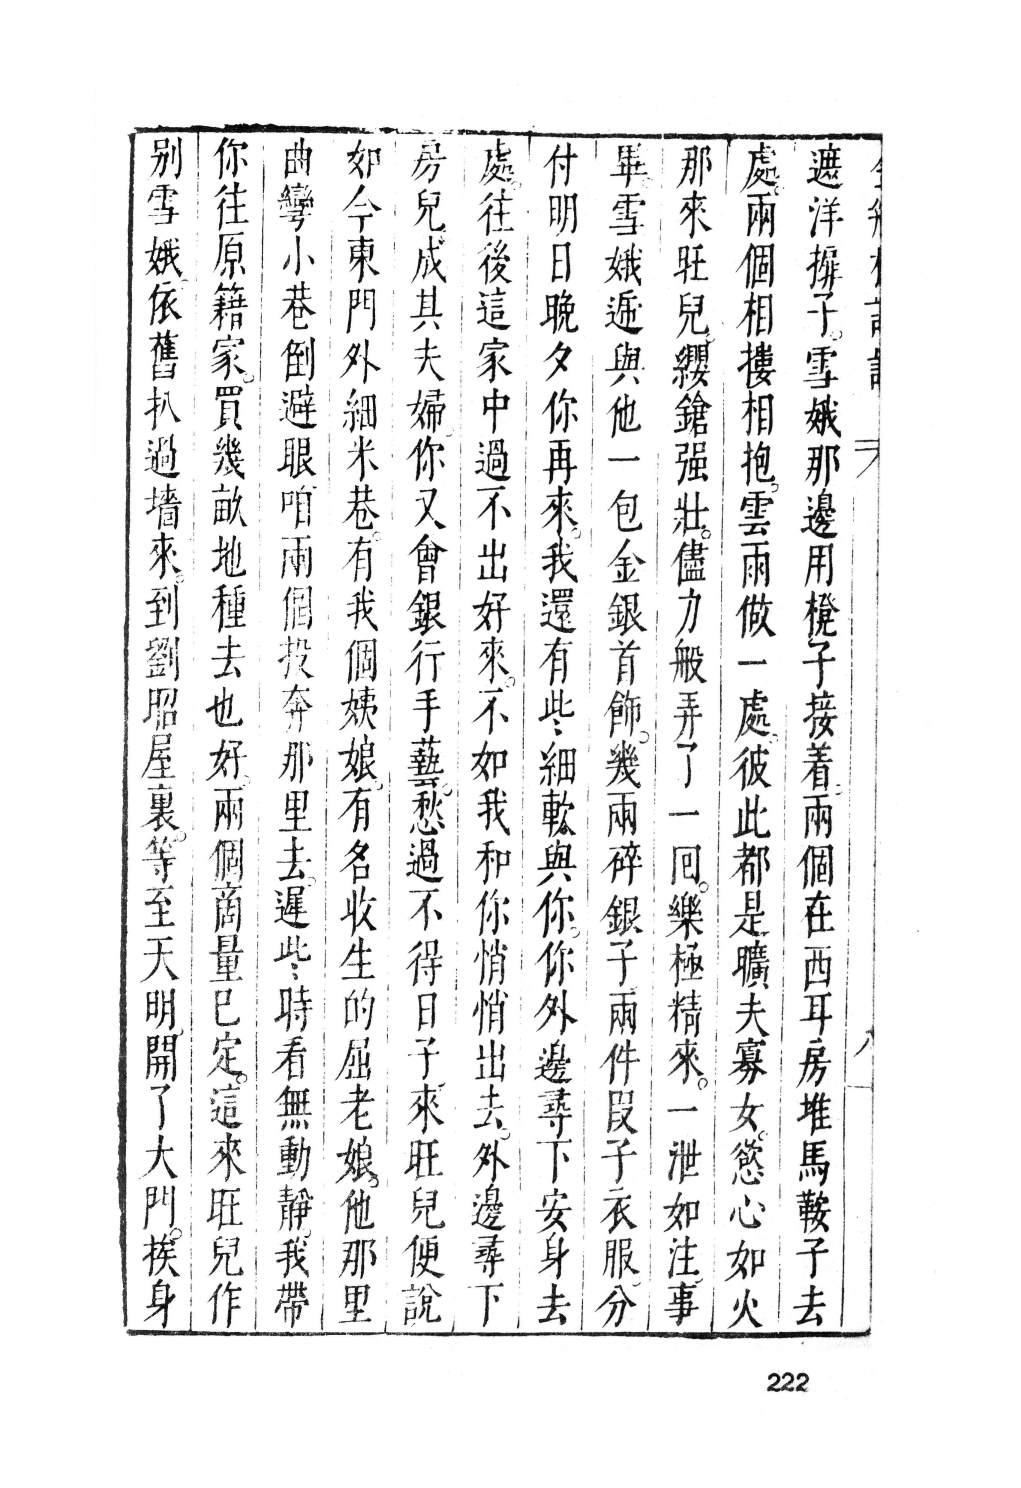 遮洋擗子。雪娥那邊用櫈子接着。兩個在西耳房堆馬鞍子去
處。兩個相摟相抱。雲雨做一處。彼此都是曠夫寡女。慾心如火
那來旺兒。纓鎗强壯。儘力般弄了一回。樂極精來。一泄如注。事
畢。雪娥遞與他一包金銀首飾。幾兩碎銀子。兩件段子衣服。分
付明日晚夕你再來。我還有些細軟與你。你外邊尋下安身去
處。往後這家中過不出好來。不如我和你悄悄出去。外邊尋下
房兒。成其夫婦。你又會銀行手藝。愁過不得日子。來旺兒便說
如今東門外細米巷。有我個姨娘。有名收生的屈老娘。他那里
曲彎小巷倒避眼。咱兩個投奔那里去。遲些時看無動靜。我帶
你往原籍家。買幾畝地種去也好。兩個商量已定。這來旺兒作
別雪娥。依舊扒過墻來。到劉昭屋裏。等至天明。開了大門。挨身
222